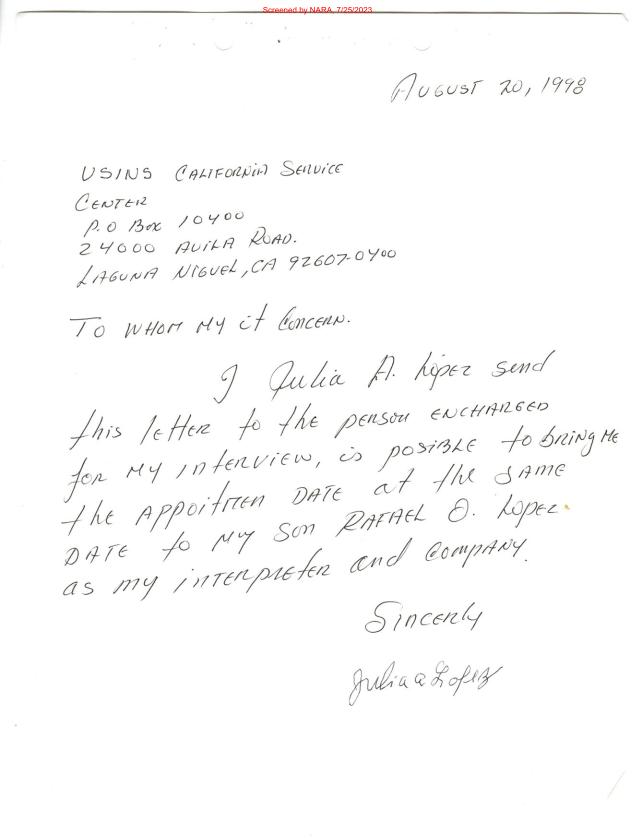 Screened by NARA, 7/25/2023
AUGUST 20, 1998
USINS CALIFORNIA SERVICE
CENTER
P.O BOX 10400
24000 AVILA ROAD.
LAGUNA NIGUEL, CA 92607-0400
TO WHOM MY it CONCERN.
I Julia A. Lopez send
this letter to the PERSON ENCHARGED
for MY INTERVIEW, is POSIBLE to bring ME
the APPOITMEN DATE at the SAME
DATE to MY SON RAFAEL O. Lopez.
as my INTERPRETER and COMPANY.
Sincerly
Julia a Lopez